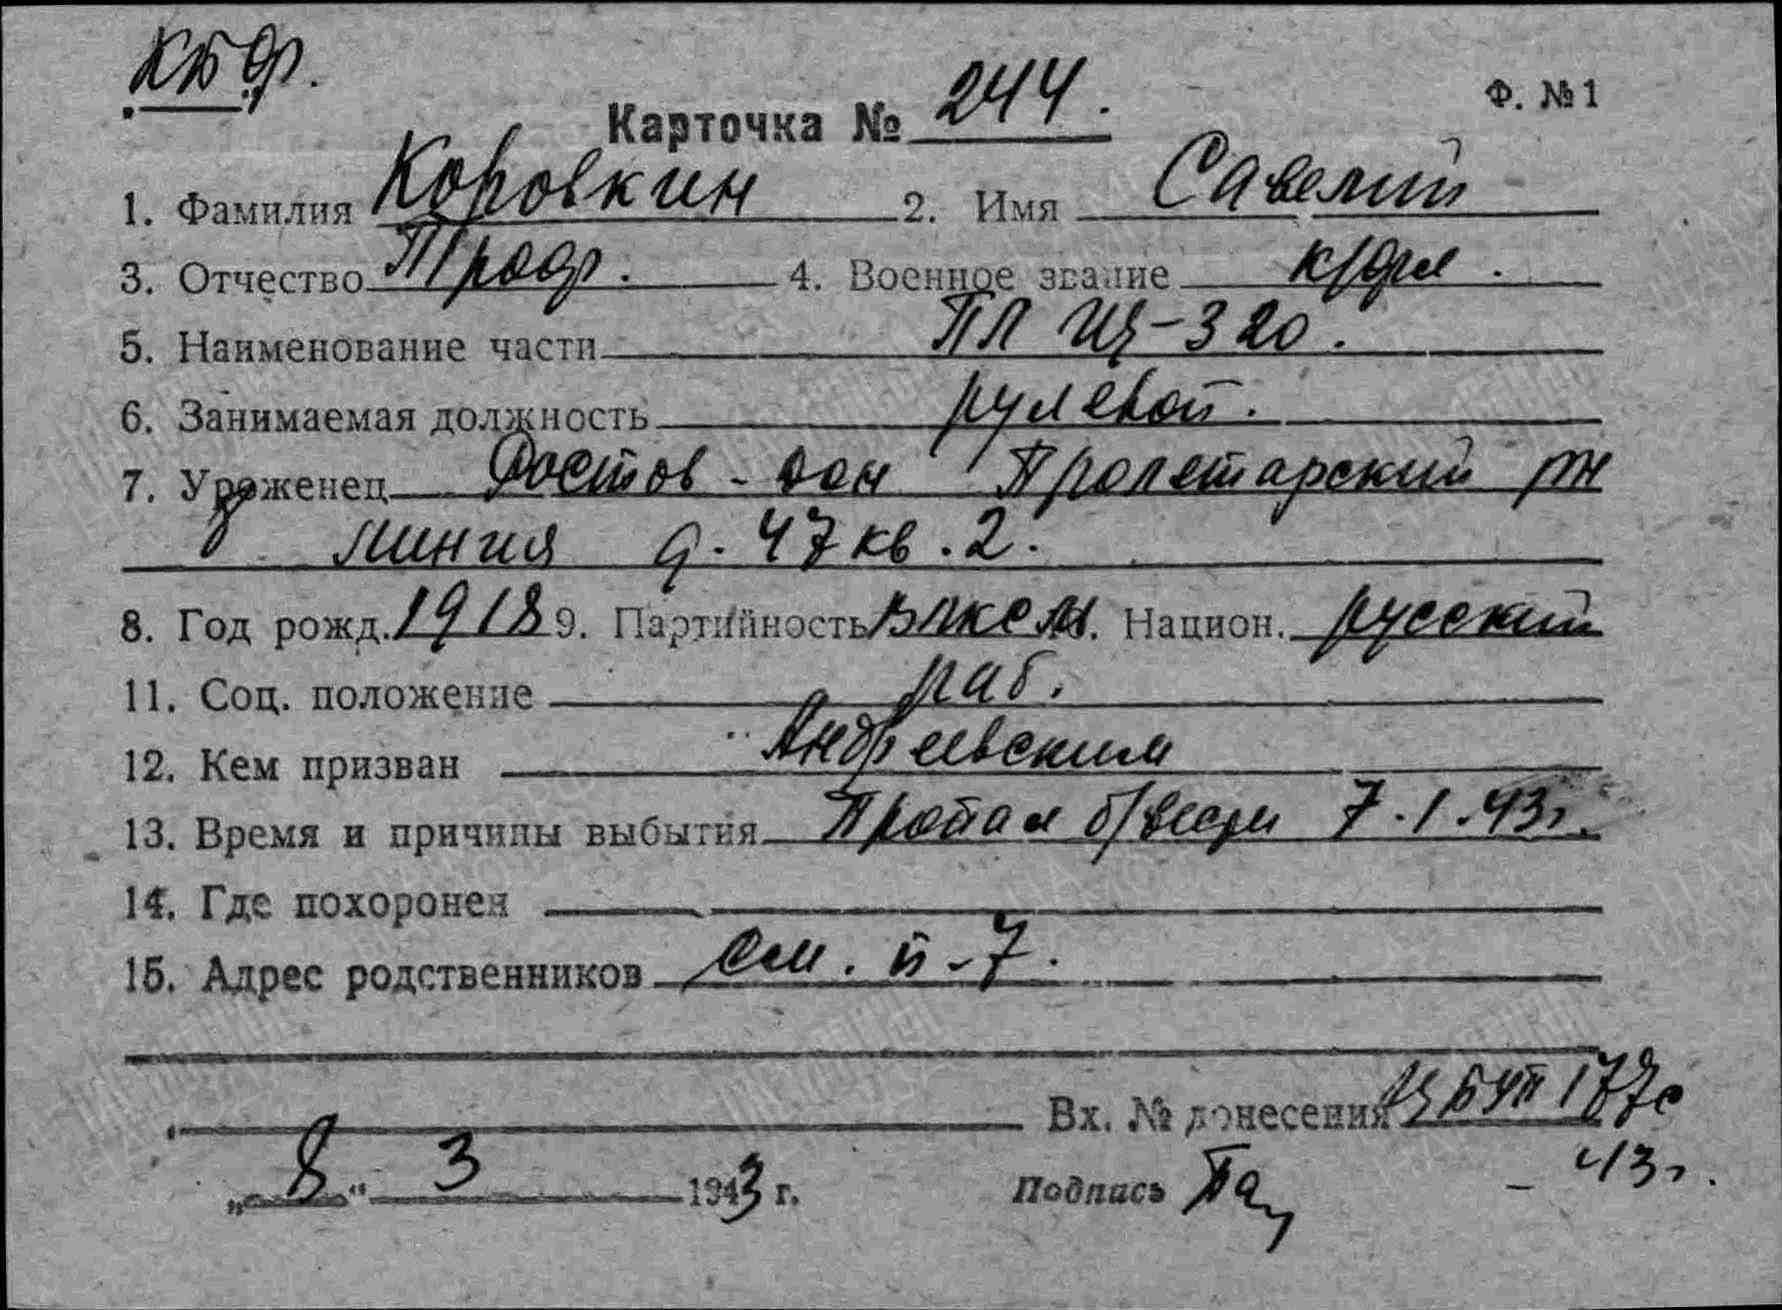 КБФ.
Карточка № 244.
Ф. № 1
1. Фамилия Коровкин 2. Имя Савелий
3. Отчество Троф. 4. Военное звание к/фл.
5. Наименование части ПЛ Щ-320.
6. Занимаемая должность рулевой.
7. Уроженец Ростов-Дон Пролетарский рн
линия д. 47 кв. 2.
8. Год рожд. 1918 9. Партийность ВЛКСМ. Национ. русский
11. Соц. положение раб.
12. Кем призван Андреевским
13. Время и причины выбытия Пропал б/вести 7.1.43г.
14. Где похоронен
15. Адрес родственников см. п-7.
Вх. № донесения 177с
„8“ 3 1943 г. Подпись — 43г.